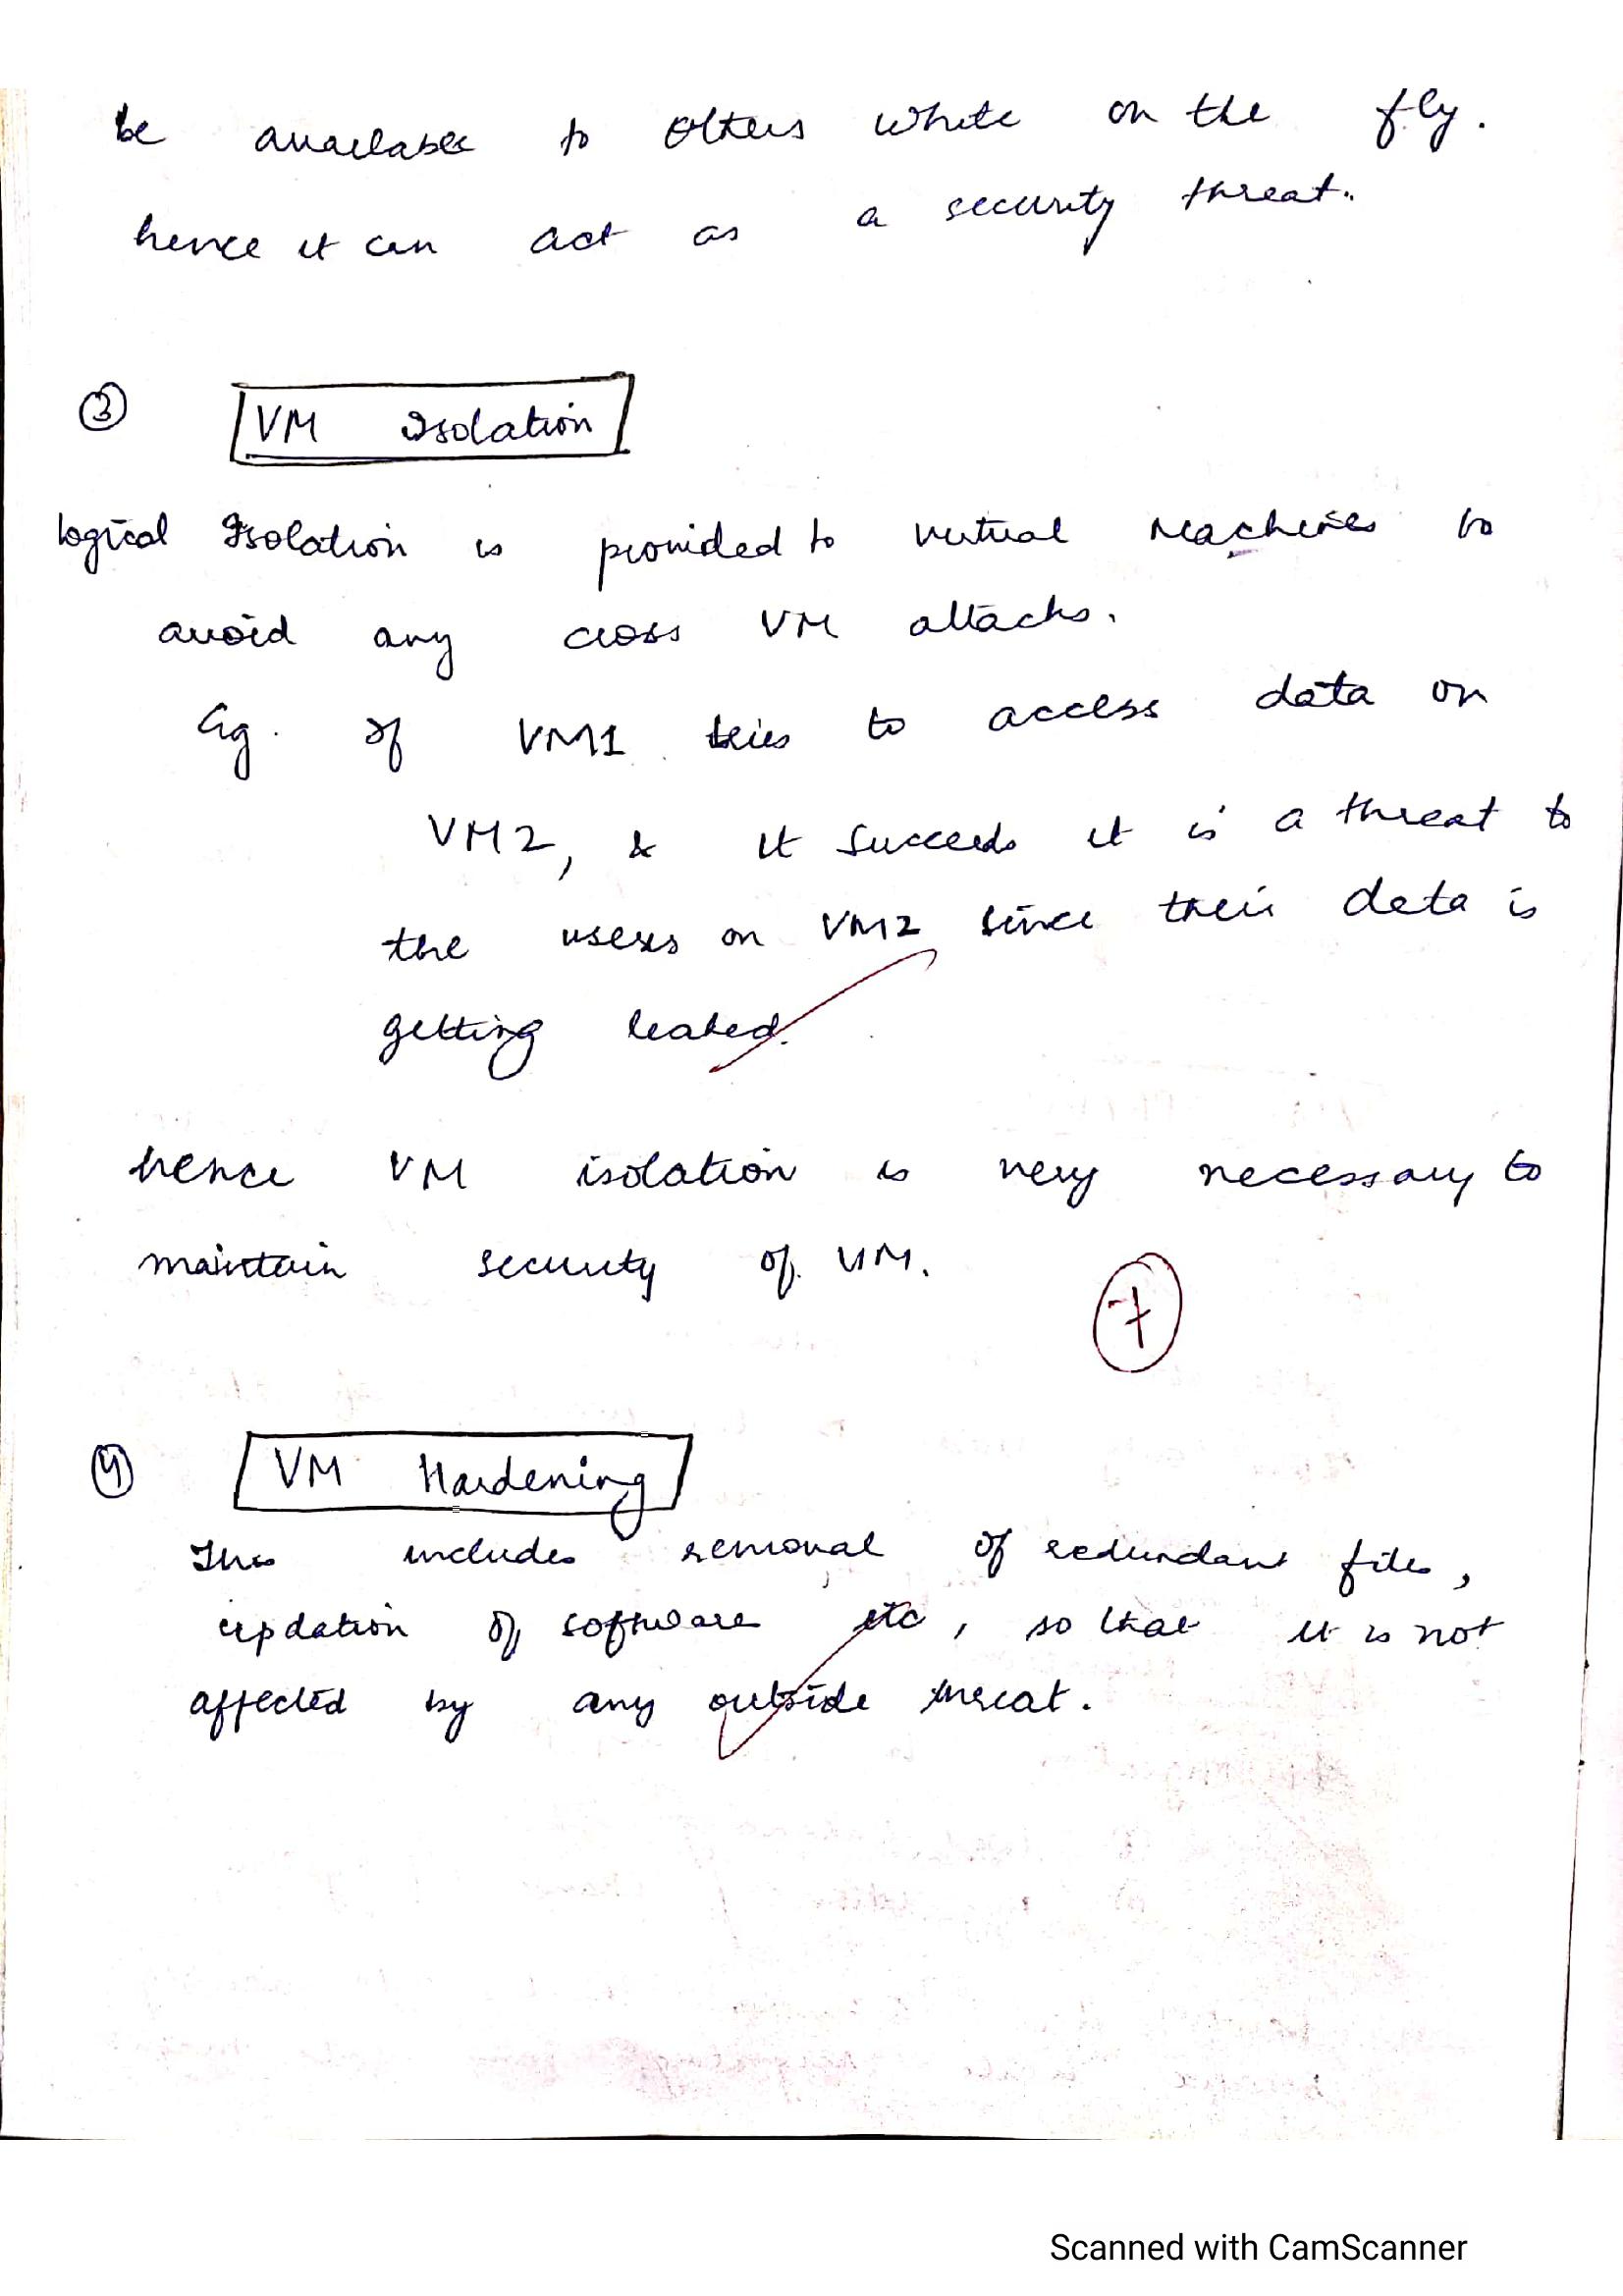 be available to others while on the fly.
hence it can act as a security threat.
③ VM Isolation
logical Isolation is provided to virtual machines to
avoid any cross VM attacks.
Eg. If VM1 tries to access data on
VM2, & it succeeds it is a threat to
the users on VM2 since their data is
getting leaked.
hence VM isolation is very necessary to
maintain security of VM.
7
④ VM Hardening
This includes removal of redundant files,
updation of software etc, so that it is not
affected by any outside threat.
Scanned with CamScanner